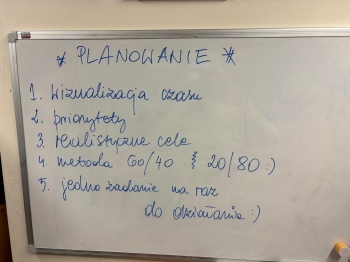 * PLANOWANIE *
1. wizualizacja czasu
2. priorytety
3. realistyczne cele
4. metoda 60/40 } 20/80 :)
5. jedno zadanie na raz
do działania :)